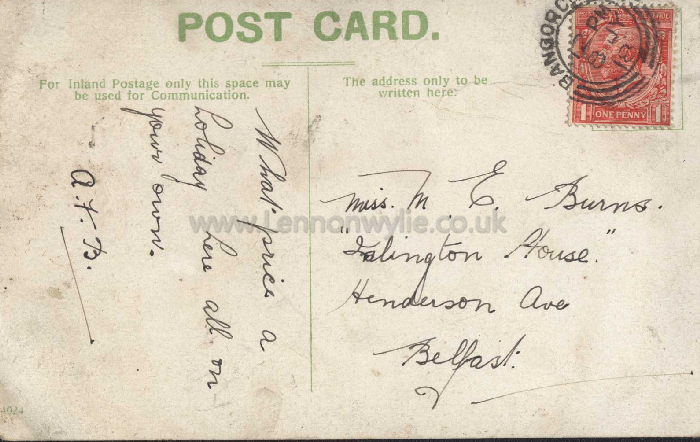 POST CARD.
For Inland Postage only this space may
be used for Communication.
The address only to be
written here.
BANGOR
PM
ONE PENNY
1 1
What price a
holiday here all on
your own.
A. F. B.
Miss. M. E. Burns.
"Islington House."
Henderson Ave
Belfast.
www.Lennonwylie.co.uk